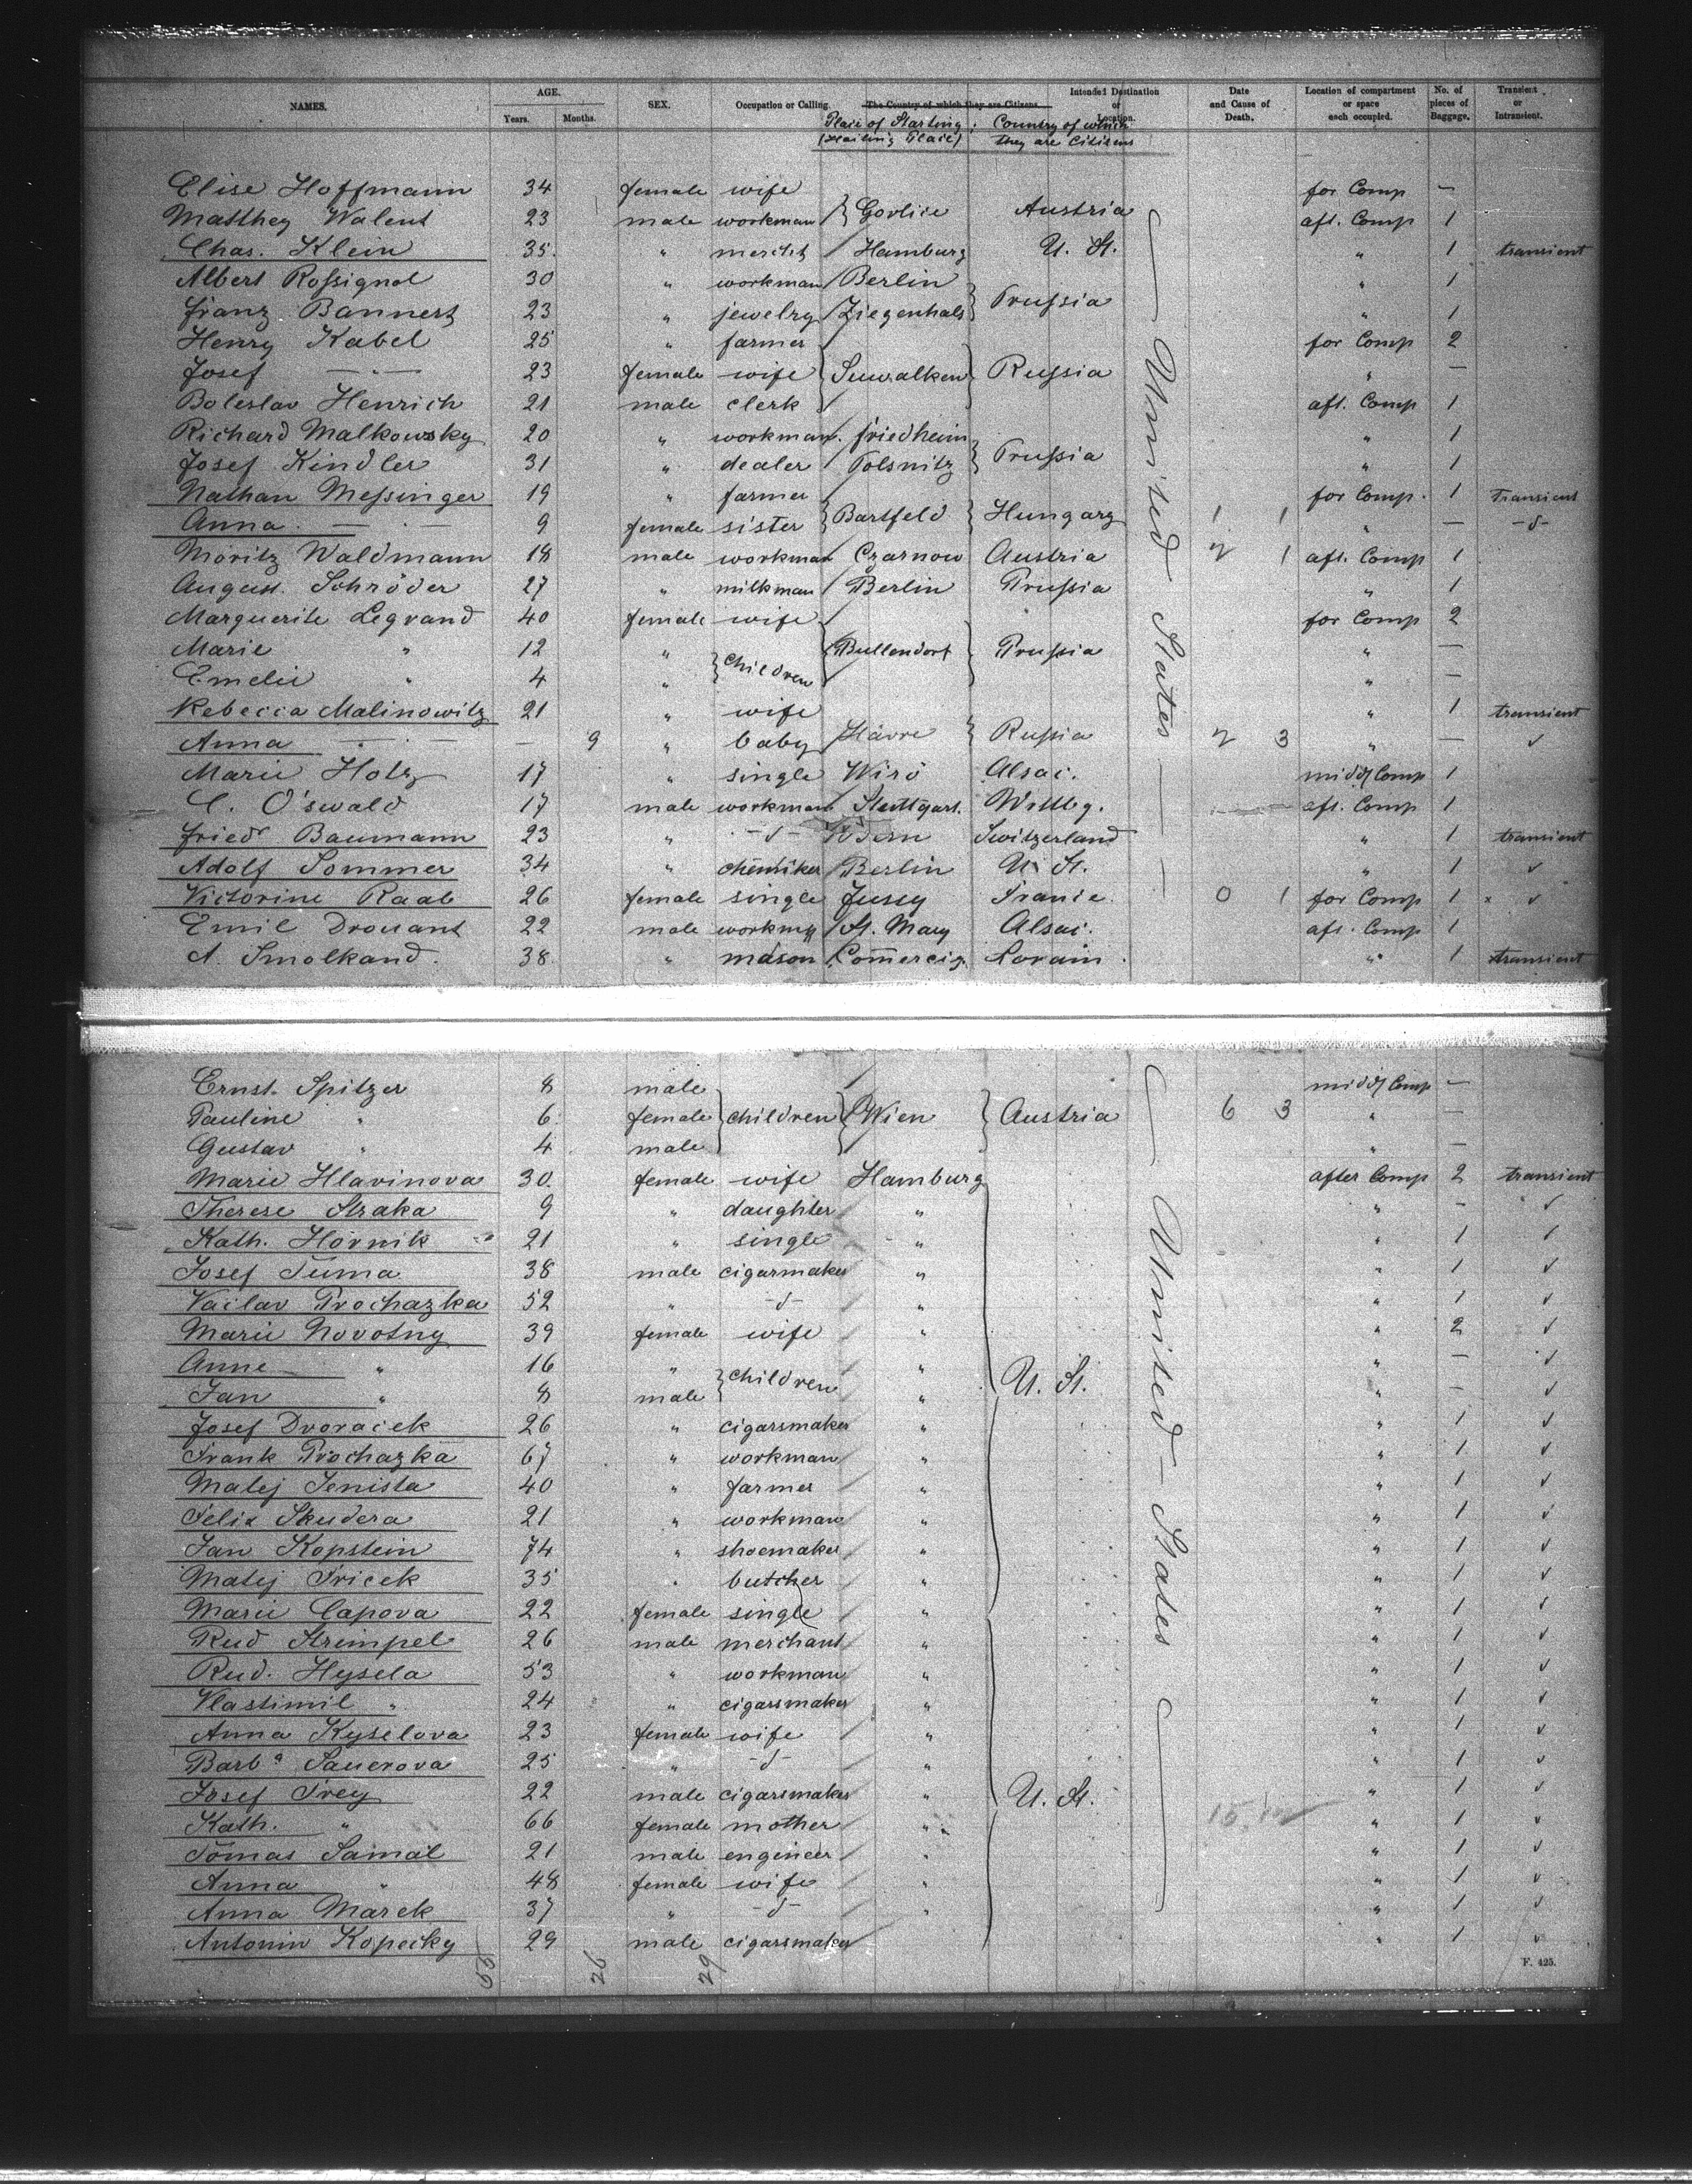 NAMES. AGE. Years. Months. SEX. Occupation or Calling. The Country of which they are Citizens. Intended Destination or Location. Date and Cause of Death. Location of compartment or space each occupied. No. of pieces of Baggage. Transient or Intransient.
Place of Starting; (Hailing Place) Country of which they are Citizens
Elise Hoffmann 34 female wife for Comp —
Matthey Walent 23 male workman Gorlice Austria aft. Comp 1
Chas. Klein 35 " mercht Hamburg U. St. " 1 transient
Albert Roſsignol 30 " workman Berlin " 1
Franz Bannert 23 " jewelry Ziegenhals Pruſsia " 1
Henry Kabel 25 " farmer for Comp 2
Josef — " — 23 female wife Suwalken Ruſsia " —
Boleslav Henrich 21 male clerk aft. Comp 1
Richard Malkowsky 20 " workman. Friedheim " 1
Josef Kindler 31 " dealer Polsnitz Pruſsia " 1
Nathan Meſsinger 19 " farmer for Comp. 1 Transient
Anna — " — 9 female sister Bartfeld Hungary 1 1 " — -d-
Moritz Waldmann 18 male workman Czarnow Austria 2 1 aft. Comp 1
August Schröder 27 " milkman Berlin Pruſsia " 1
Marguerite Legrand 40 female wife for Comp 2
Marie " 12 " children Bullendorf Pruſsia " —
Emelie " 4 " " —
Rebecca Malinowitz 21 " wife " 1 transient
Anna — " — — 9 " baby Havre Ruſsia 2 3 " — ✓
Marie Hotz 17 " single Wirö Alsac. midd Comp 1
C. O'swald 17 male workman Stuttgart. Wttbg. aft. Comp 1
Friedr Baumann 23 " -d- Bern Switzerland " 1 transient
Adolf Sommer 34 " chemiker Berlin U. St. " 1 ✓
Victorine Raab 26 female single Jussy France. 0 1 for Comp 1 x ✓
Emil Drouant 22 male workmn St. Mary Alsac. aft. Comp 1
A. Smolkand. 38 " mason Comercig. Lorain. " 1 transient
United States
Ernst Spitzer 8 male midd Comp —
Pauline " 6 female children Wien Austria 6 3 " —
Gustav " 4 male " —
Marie Hlavinova 30 female wife Hamburg after Comp 2 transient
Therese Straka 9 " daughter " " - ✓
Kath. Hornik 21 " single " " 1 ✓
Josef Tuma 38 male cigarmaker " " 1 ✓
Vaclav Prochazka 52 " -d- " " 1 ✓
Marie Novotny 39 female wife " " 2 ✓
Anne " 16 " children " " — ✓
Jan " 8 male " U. St. " — ✓
Josef Dvoracek 26 " cigarsmaker " " 1 ✓
Frank Prochazka 67 " workman " " 1 ✓
Matej Jenista 40 " farmer " " 1 ✓
Felix Skudera 21 " workman " " 1 ✓
Jan Kopstein 74 " shoemaker " " 1 ✓
Matej Fricek 35 " butcher " " 1 ✓
Marie Capova 22 female single " " 1 ✓
Rud Strimpel 26 male merchant " " 1 ✓
Rud. Hysela 53 " workman " " 1 ✓
Vlastimil " 24 " cigarsmaker " " 1 ✓
Anna Kyselova 23 female wife " " 1 ✓
Barbª Sauerova 25 " -d- " " 1 ✓
Josef Frey 22 male cigarsmaker " U. St. " 1 ✓
Kath. " 66 female mother " " 1 ✓
Tomas Samal 21 male engineer " " 1 ✓
Anna " 48 female wife " " 1 ✓
Anna Marek 37 " -d- " " 1 ✓
Antonin Kopecky 29 male cigarsmaker " 1 ✓
United - States
55 26 29
F. 425.